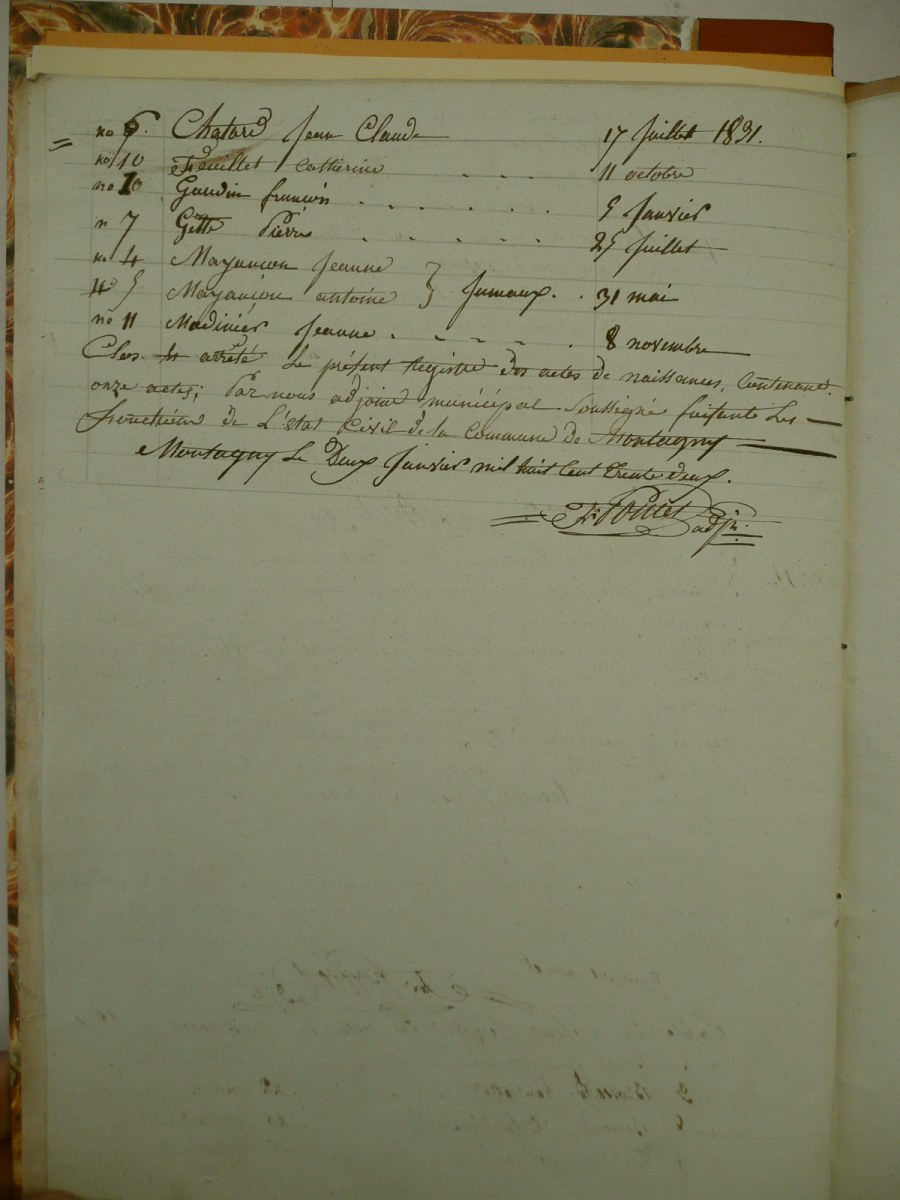 = no 6. Chatard Jean Claude 17 Juillet 1831.
no 10 Feuillet Catherine . . . . 11 octobre
no 10 Gaudin françois . . . . . . 5 Janvier
n 7 Gette Pierre . . . . . 25 Juillet
no 4 Mayançon Jeanne }
no 5 Mayançon antoine } Jumaux. . 31 mai
no 11 Madinier Jeanne . . . . . 8 novembre
Clos et arrêté Le présent Registre des actes de naissances, Contenant
onze actes; Par nous adjoint municipal Soussigné faisante Les
fonctions de L'état Civil de la Commune de Montagny
Montagny Le Deux Janvier mil huit Cent trente deux.
Pontet adjt.